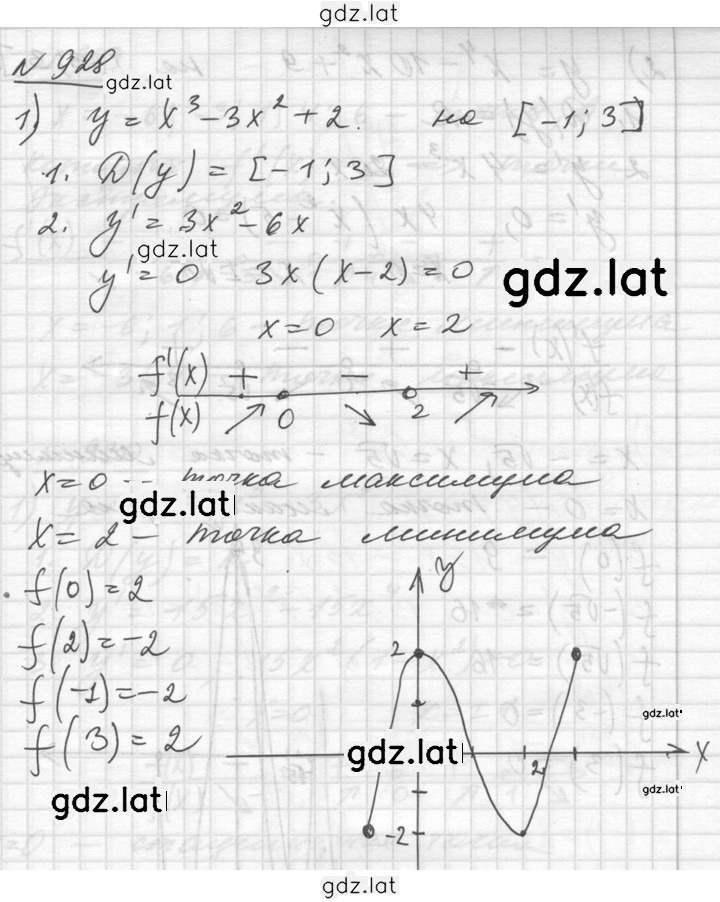 gdz.lat
N 928
gdz.lat
1) y = x³ - 3x² + 2. на [-1; 3]
1. D(y) = [-1; 3]
2. y' = 3x² - 6x
gdz.lat
y' = 0 3x(x-2) = 0
gdz.lat
x = 0 x = 2
f'(x) + - +
f(x) ↗ 0 ↘ 2 ↗
x = 0 - точка максимума
gdz.lat
x = 2 - точка минимума
f(0) = 2
f(2) = -2
f(-1) = -2
f(3) = 2
y
2
gdz.lat
gdz.lat
x
2
gdz.lat
gdz.lat
-2
gdz.lat